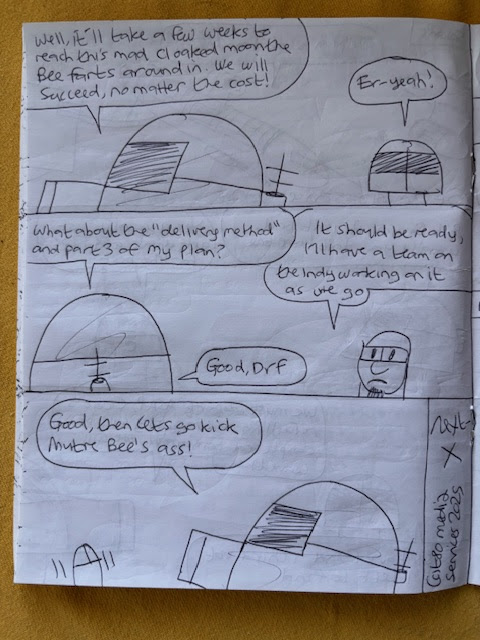 Well, it'll take a few weeks to
reach this mad cloaked moon the
Bee farts around in. We will
Succeed, no matter the cost!
Er-yeah!
What about the "delivery method"
and part 3 of my plan?
It should be ready,
I'll have a team on
the Indy working on it
as we go
Good, Drf
Good, then lets go kick
Mutre Bee's ass!
next
media
services 2025